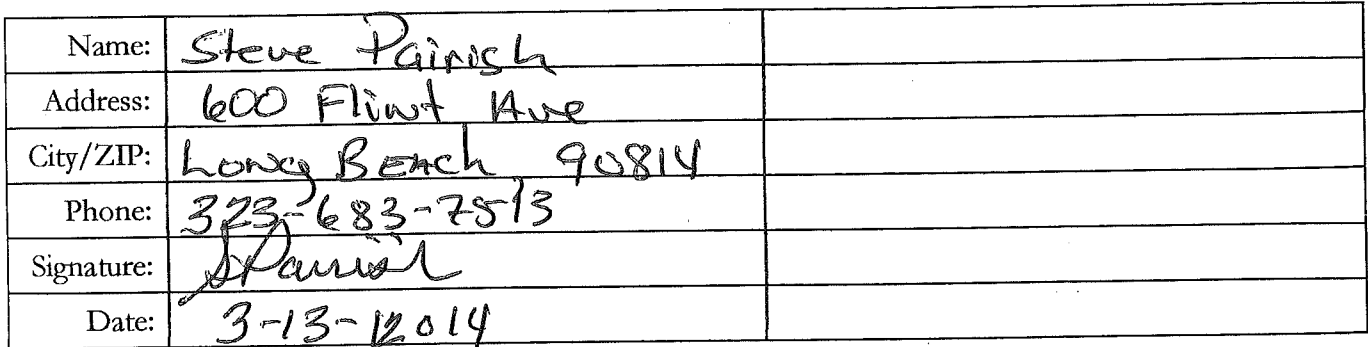 Name: Steve Pairish
Address: 600 Flint Ave
City/ZIP: Long Beach 90814
Phone: 323-683-7513
Signature: SParrish
Date: 3-13-2014